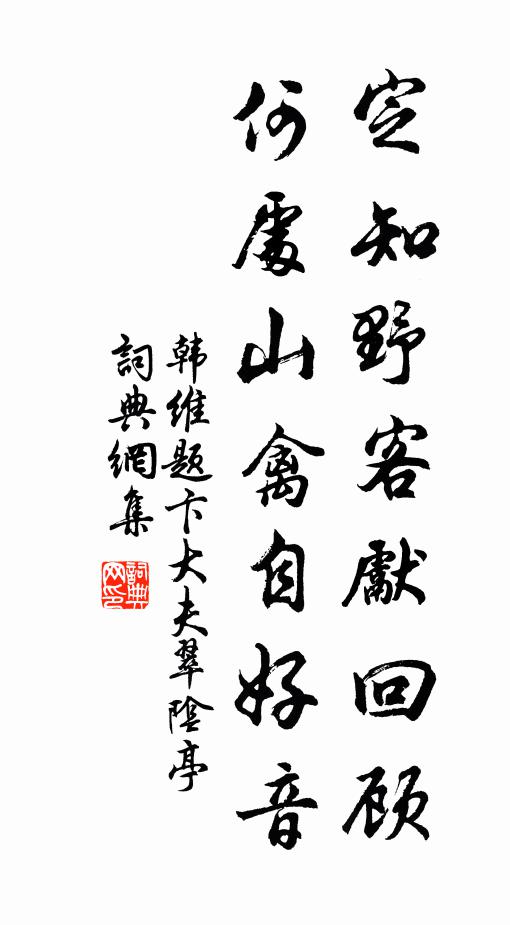 定知野客獻回顾
何處山禽自好音
韩維题卞大夫翠陰亭
詞典網集
詞典网印